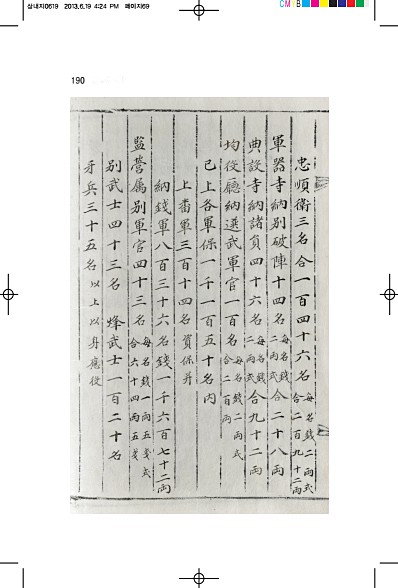 삼내지0619 2013.6.19 4:24 PM 페이지69
CMYB
190
忠順衛三名合一百四十六名每名錢二兩式合二百九十二兩
軍器寺納別破陣十四名每名錢二兩式合二十八兩
典設寺納諸員四十六名每名錢二兩式合九十二兩
均役廳納選武軍官一百名每名錢二兩式合二百兩
已上各軍保一千一百五十名內
上番軍三百十四名資保幷
納錢軍八百三十六名錢一千六百七十二兩
監營屬別軍官四十三名每名錢一兩五戔式合六十四兩五戔
別武士四十三名 烽武士一百二十名
牙兵三十五名以上以身應役